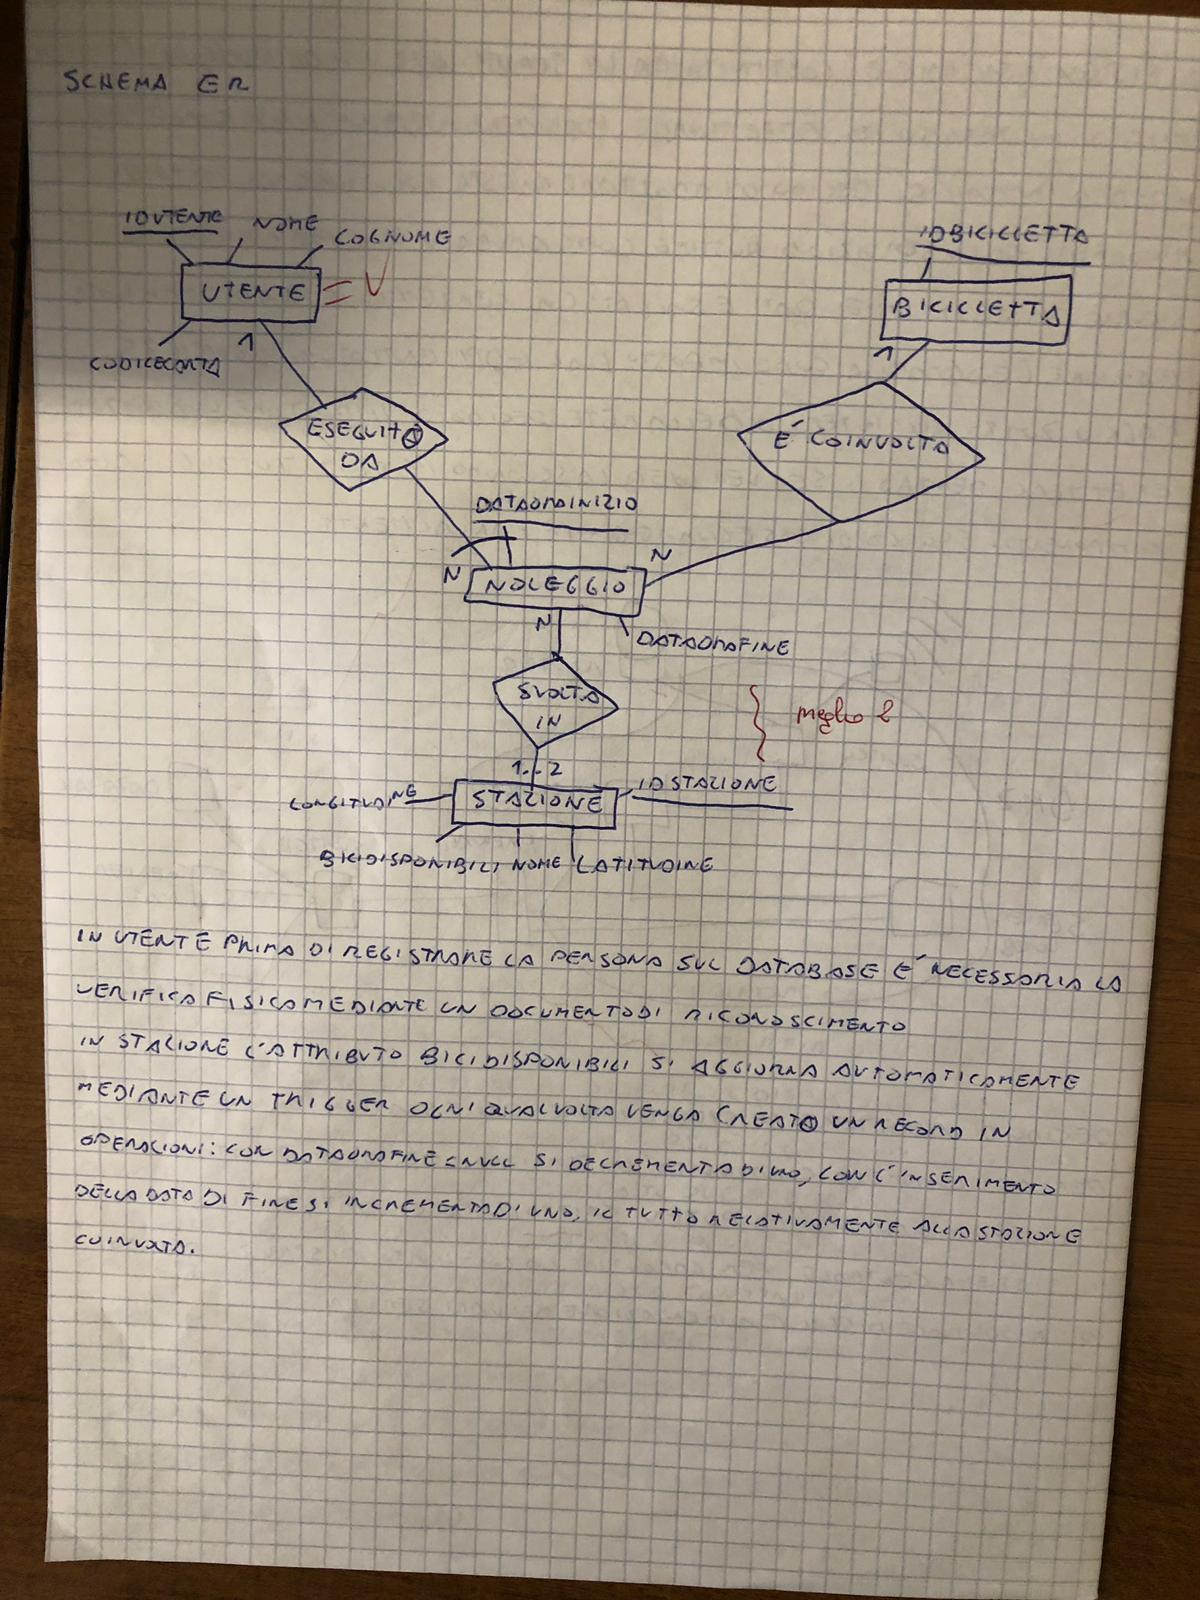 SCHEMA ER
IDUTENTE NOME COGNOME
UTENTE
CODICECARTA
1
IDBICICLETTA
BICICLETTA
1
ESEGUITO
DA
É COINVOLTA
DATAORAINIZIO
N
N
NOLEGGIO
N
DATAORAFINE
SVOLTA
IN
meglio 2
1..2
LONGITUDINE
STAZIONE
IDSTAZIONE
BICIDISPONIBILI NOME LATITUDINE
IN UTENTE PRIMA DI REGISTRARE LA PERSONA SUL DATABASE É NECESSARIA LA
VERIFICA FISICA MEDIANTE UN DOCUMENTO DI RICONOSCIMENTO
IN STAZIONE L'ATTRIBUTO BICIDISPONIBILI SI AGGIORNA AUTOMATICAMENTE
MEDIANTE UN TRIGGER OGNI QUALVOLTA VENGA CREATO UN RECORD IN
OPERAZIONI: CON DATAORAFINE NULL SI DECREMENTA DI UNO, CON L'INSERIMENTO
DELLA DATA DI FINE SI INCREMENTA DI UNO, IL TUTTO RELATIVAMENTE ALLA STAZIONE
COINVOLTA.